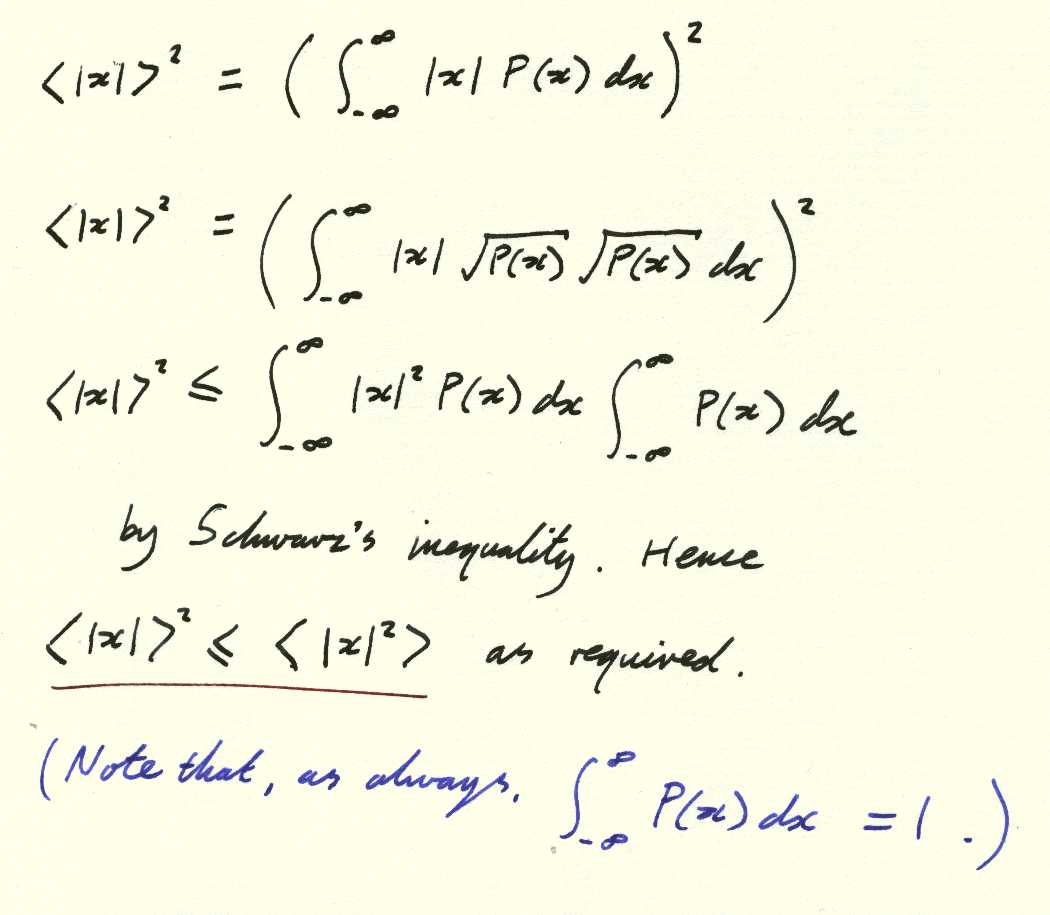 <|x|>² = (∫_{-∞}^{∞} |x| P(x) dx)²
<|x|>² = (∫_{-∞}^{∞} |x| √P(x) √P(x) dx)²
<|x|>² ≤ ∫_{-∞}^{∞} |x|² P(x) dx ∫_{-∞}^{∞} P(x) dx
by Schwarz's inequality. Hence
<|x|>² ≤ <|x|²> as required.
(Note that, as always, ∫_{-∞}^{∞} P(x) dx = 1.)